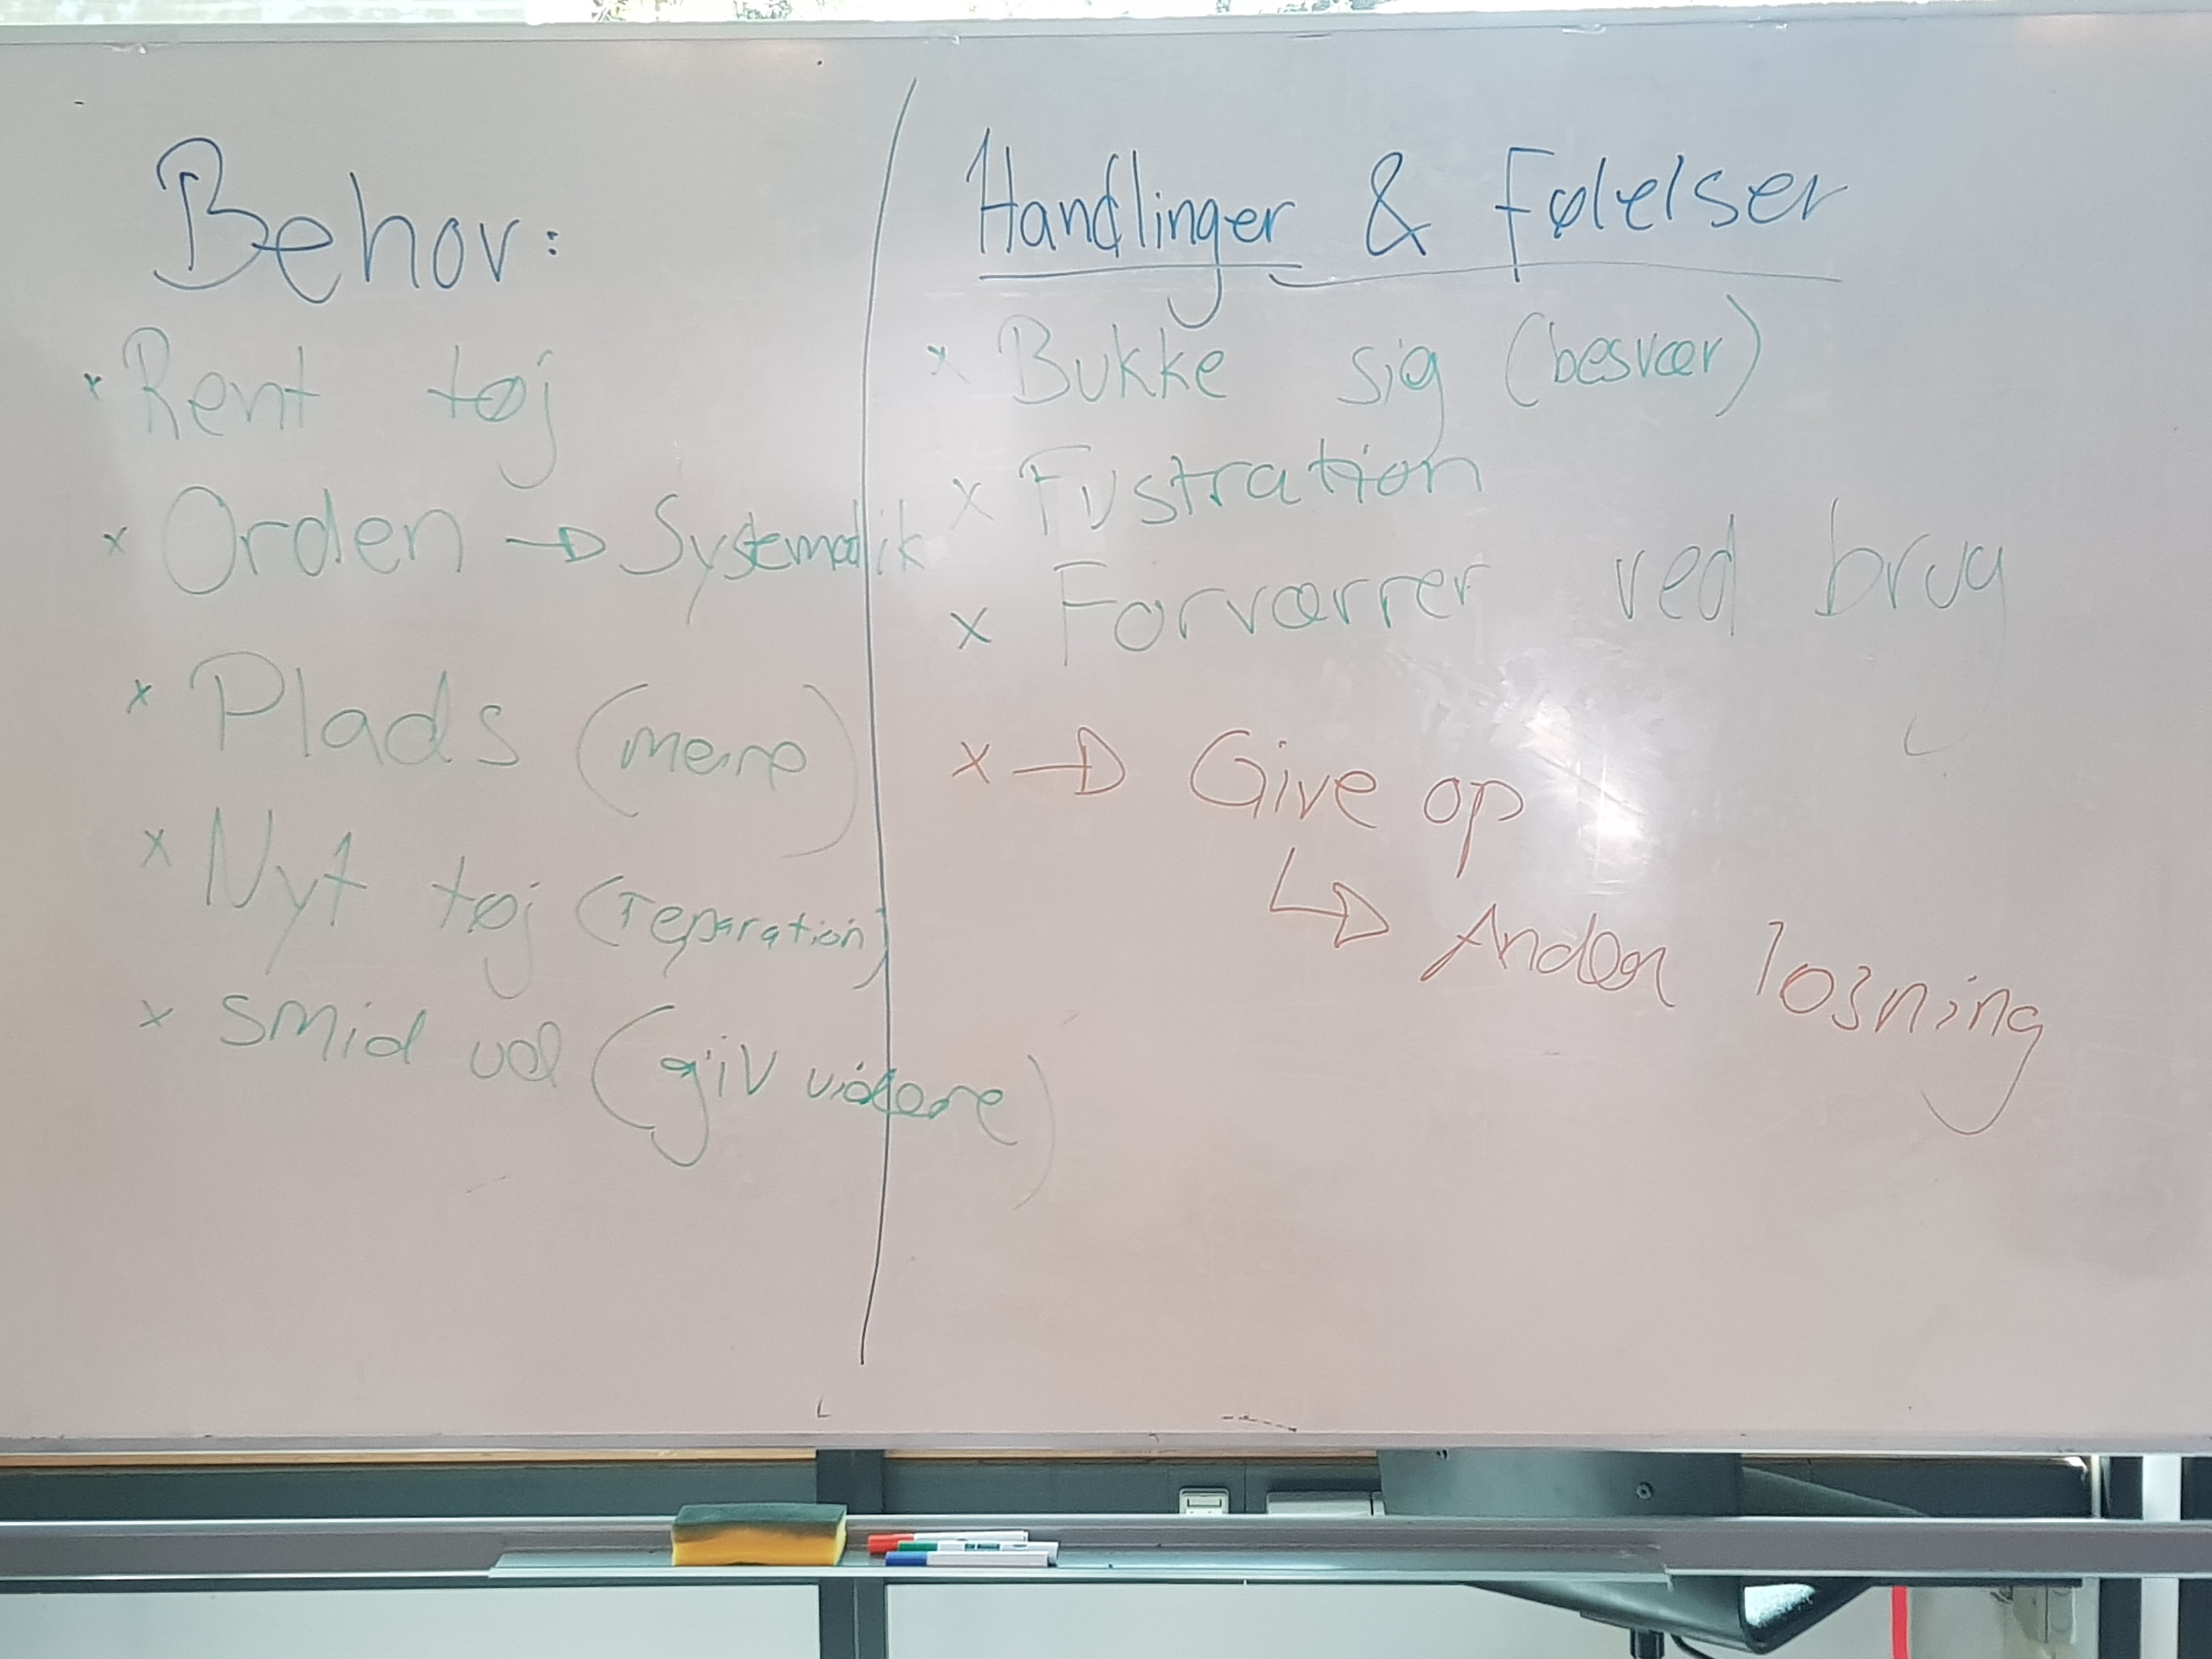 Behov:
x Rent tøj
x Orden → Systematik
x Plads (mere)
x Nyt tøj (reparation)
x Smid ud (giv videre)
Handlinger & Følelser
x Bukke sig (besvær)
x Fustration
x Forværrer ved brug
x → Give op
↳ Anden løsning